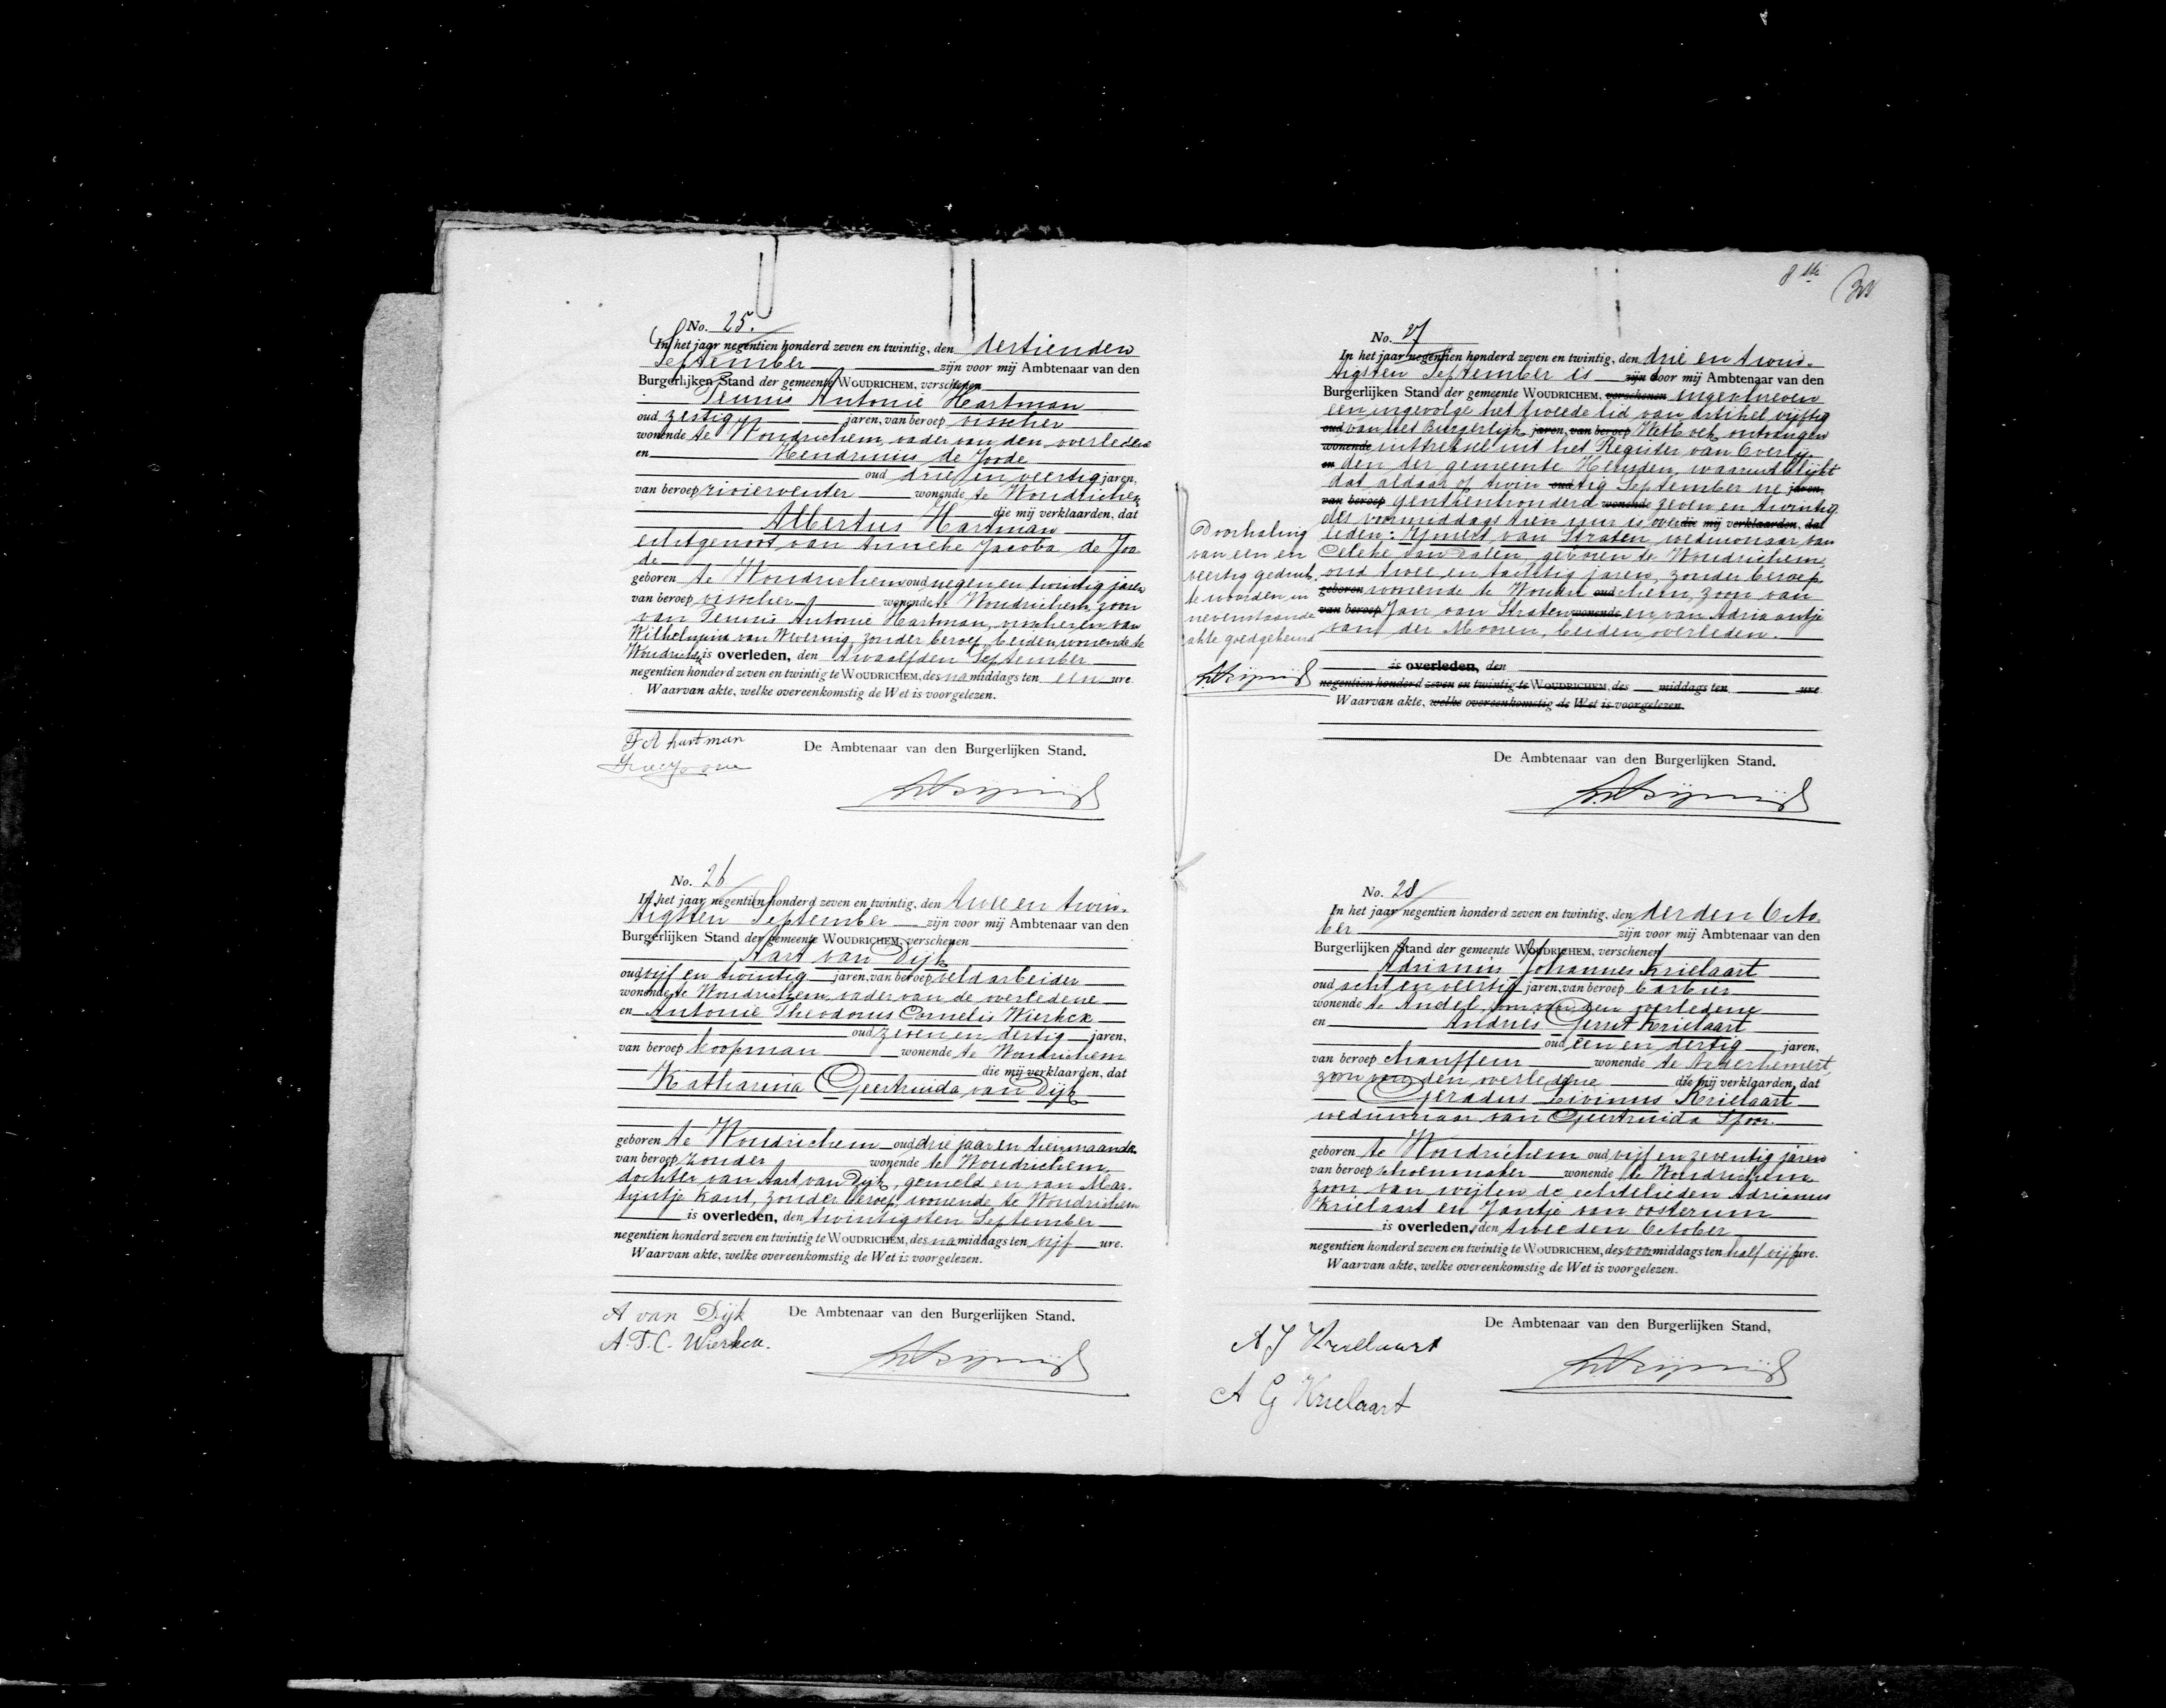 No. 25.
In het jaar negentien honderd zeven en twintig, den dertienden
September zijn voor mij Ambtenaar van den
Burgerlijken Stand der gemeente WOUDRICHEM, verschenen
Teunis Antonie Hartman
oud zestig jaren, van beroep visscher
wonende te Woudrichem, vader van den overledene
en Hendrinus de Joode
oud drie en veertig jaren,
van beroep rivierventer wonende te Woudrichem
die mij verklaarden, dat
Albertus Hartman
echtgenoot van Anneke Jacoba de Joo
de
geboren te Woudrichem oud negen en twintig jaren
van beroep visscher wonende te Woudrichem, zoon
van Teunis Antonie Hartman, visscher en van
Wilhelmina van Weernig, zonder beroep, beiden wonende te
Woudrichem is overleden, den twaalfden September
negentien honderd zeven en twintig te WOUDRICHEM, des namiddags ten een ure.
Waarvan akte, welke overeenkomstig de Wet is voorgelezen.
T A hartman
De Ambtenaar van den Burgerlijken Stand.
No. 26
In het jaar negentien honderd zeven en twintig, den twee en twin-
tigsten September zijn voor mij Ambtenaar van den
Burgerlijken Stand der gemeente WOUDRICHEM, verschenen
Aart van Dijk
oud vijf en twintig jaren, van beroep veldarbeider
wonende te Woudrichem, vader van de overledene
en Antonie Theodorus Cornelis Wierkck
oud zeven en dertig jaren,
van beroep koopman wonende te Woudrichem
die mij verklaarden, dat
Katharina Geertruida van Dijk
geboren te Woudrichem oud drie jaar en tien maanden
van beroep zonder wonende te Woudrichem,
dochter van Aart van Dijk, gemeld en van Mar-
tijntje Kant, zonder beroep, wonende te Woudrichem
is overleden, den twintigsten September
negentien honderd zeven en twintig te WOUDRICHEM, des namiddags ten vijf ure.
Waarvan akte, welke overeenkomstig de Wet is voorgelezen.
A van Dijk
De Ambtenaar van den Burgerlijken Stand.
A. T. C. Wierkck.
8ste
No. 27
In het jaar negentien honderd zeven en twintig, den drie en twin-
tigsten September is zijn door mij Ambtenaar van den
Burgerlijken Stand der gemeente WOUDRICHEM, verschenen ingeschreven
een ingevolge het tweede lid van artikel vijftig
oud van het Burgerlijk jaren, van beroep Wetboek ontvangen
wonende uittreksel uit het Register van Overlij-
en den der gemeente Heusden, waaruit blijkt
dat aldaar op twin oud tig September ne jaren,
van beroep gentienhonderd wonende zeven en twintig
des voormiddags tien uur is over die mij verklaarden, dat
leden: IJmert van Straten, weduwnaar van
Celeke van Dalen, geboren te Woudrichem,
oud twee en tachtig jaren, zonder beroep,
geboren wonende te Woudri oud chem, zoon van
van beroep Jan van Straten wonende en van Adriaantje
van der Mooren, beiden overleden.
is overleden, den
negentien honderd zeven en twintig te WOUDRICHEM, des middags ten ure
Waarvan akte, welke overeenkomstig de Wet is voorgelezen.
Doorhaling
van een en
veertig gedruk-
te woorden in
nevenstaande
akte goedgekeurd
De Ambtenaar van den Burgerlijken Stand.
No. 28
In het jaar negentien honderd zeven en twintig, den derden Octo
ber zijn voor mij Ambtenaar van den
Burgerlijken Stand der gemeente WOUDRICHEM, verschenen
Adrianus Johannes Krielaart
oud acht en veertig jaren, van beroep barbier
wonende te Andel, zoon van den overledene
en Andries Gerrit Krielaart
oud een en dertig jaren,
van beroep chauffeur wonende te Nederhemert,
zoon van den overledene die mij verklaarden, dat
Geradus Livinus Krielaart
weduwnaar van Geertruida Spoor
geboren te Woudrichem oud vijf en zeventig jaren
van beroep schoenmaker wonende te Woudrichem
zoon van wijlen de echtelieden Adrianus
Krielaart en Jantje van Oosterum
is overleden, den tweeden October
negentien honderd zeven en twintig te WOUDRICHEM, des voormiddags ten half vijf ure.
Waarvan akte, welke overeenkomstig de Wet is voorgelezen.
De Ambtenaar van den Burgerlijken Stand,
A J Krielaart
A G Krielaart